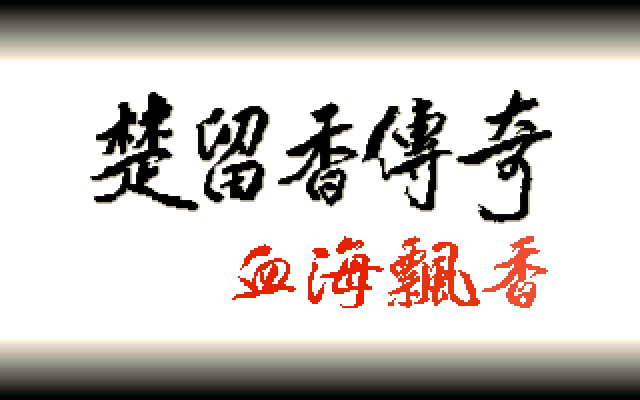 楚留香傳奇
血海飄香